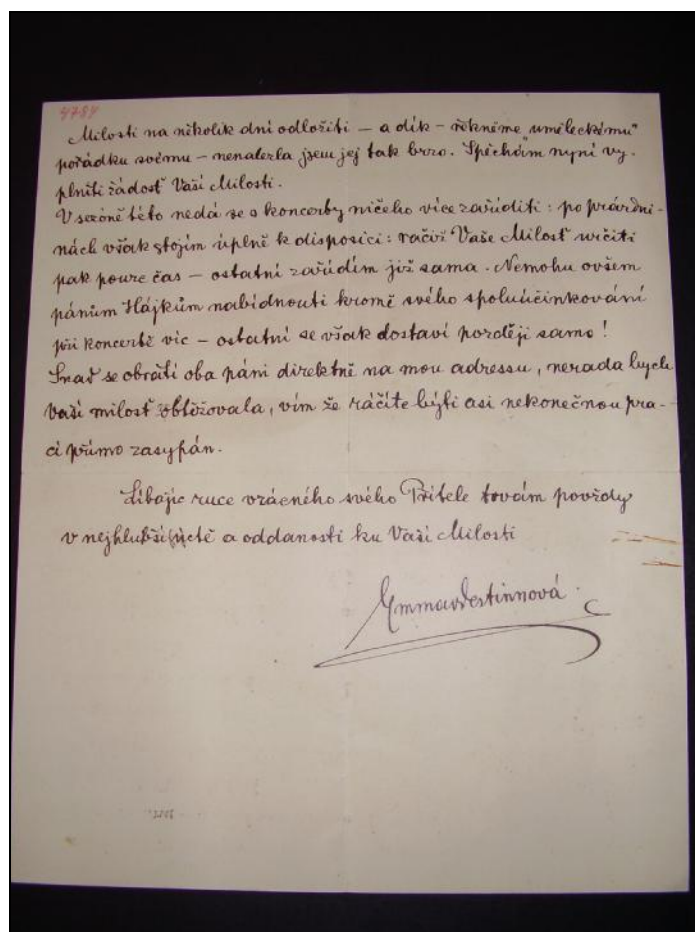 4784
Milosti na několik dní odložiti – a dík – řekněme "uměleckému"
pořádku svému – nenalezla jsem jej tak brzo. Spěchám nyní vy-
plniti žádosť Vaší Milosti.
V sezóně této nedá se s koncerty ničeho více zařúditi: po prázdni-
nách však stojím úplně k disposici: račiž Vaše Milosť určiti
pak pouze čas – ostatní zařúdím již sama. Nemohu ovšem
pánům Hájkům nabídnouti kromě svého spoluúčinkování
při koncertě víc – ostatní se však dostaví později samo!
Snaď se obrátí oba páni direktně na mou adressu, nerada bych
Vaší milosť obtěžovala, vím že ráčíte býti asi nekonečnou pra-
cí přímo zasypán.
Líbajíc ruce vzácného svého Přítele trvám povždy
v nejhlubší úctě a oddanosti ku Vaší Milosti
Emmavdestinnová.